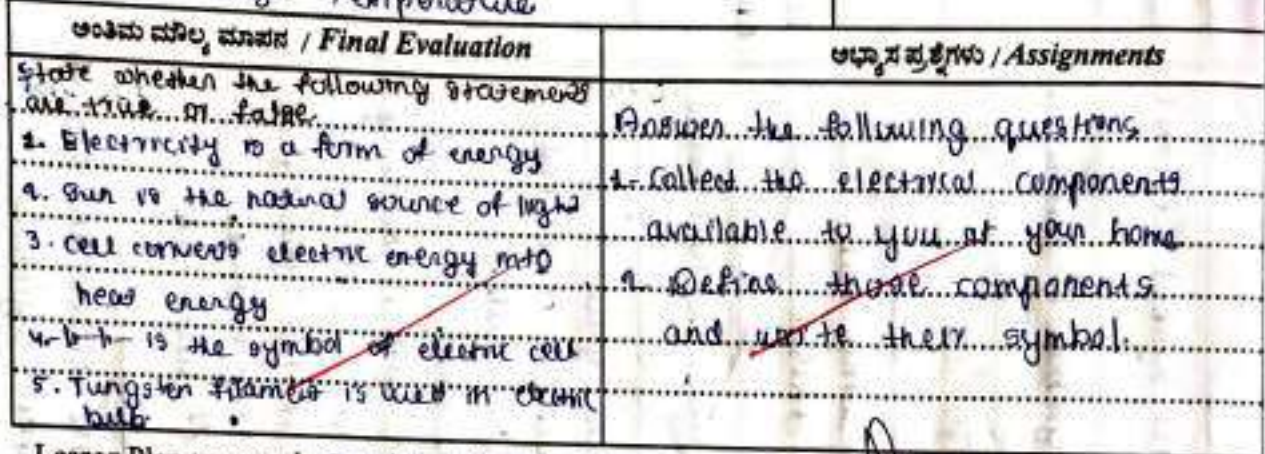 ಅಂತಿಮ ಮೌಲ್ಯ ಮಾಪನ / Final Evaluation
State whether the following statements
are true or false
1. Electricity is a form of energy
2. Sun is the natural source of light
3. Cell converts electric energy into
heat energy
4. is the symbol of electric cell
5. Tungsten filament is used in electric
bulb
ಅಭ್ಯಾಸ ಪ್ರಶ್ನೆಗಳು / Assignments
Answer the following questions
1- Collect the electrical components
available to you at your home
2. Define those components
and write their symbol.